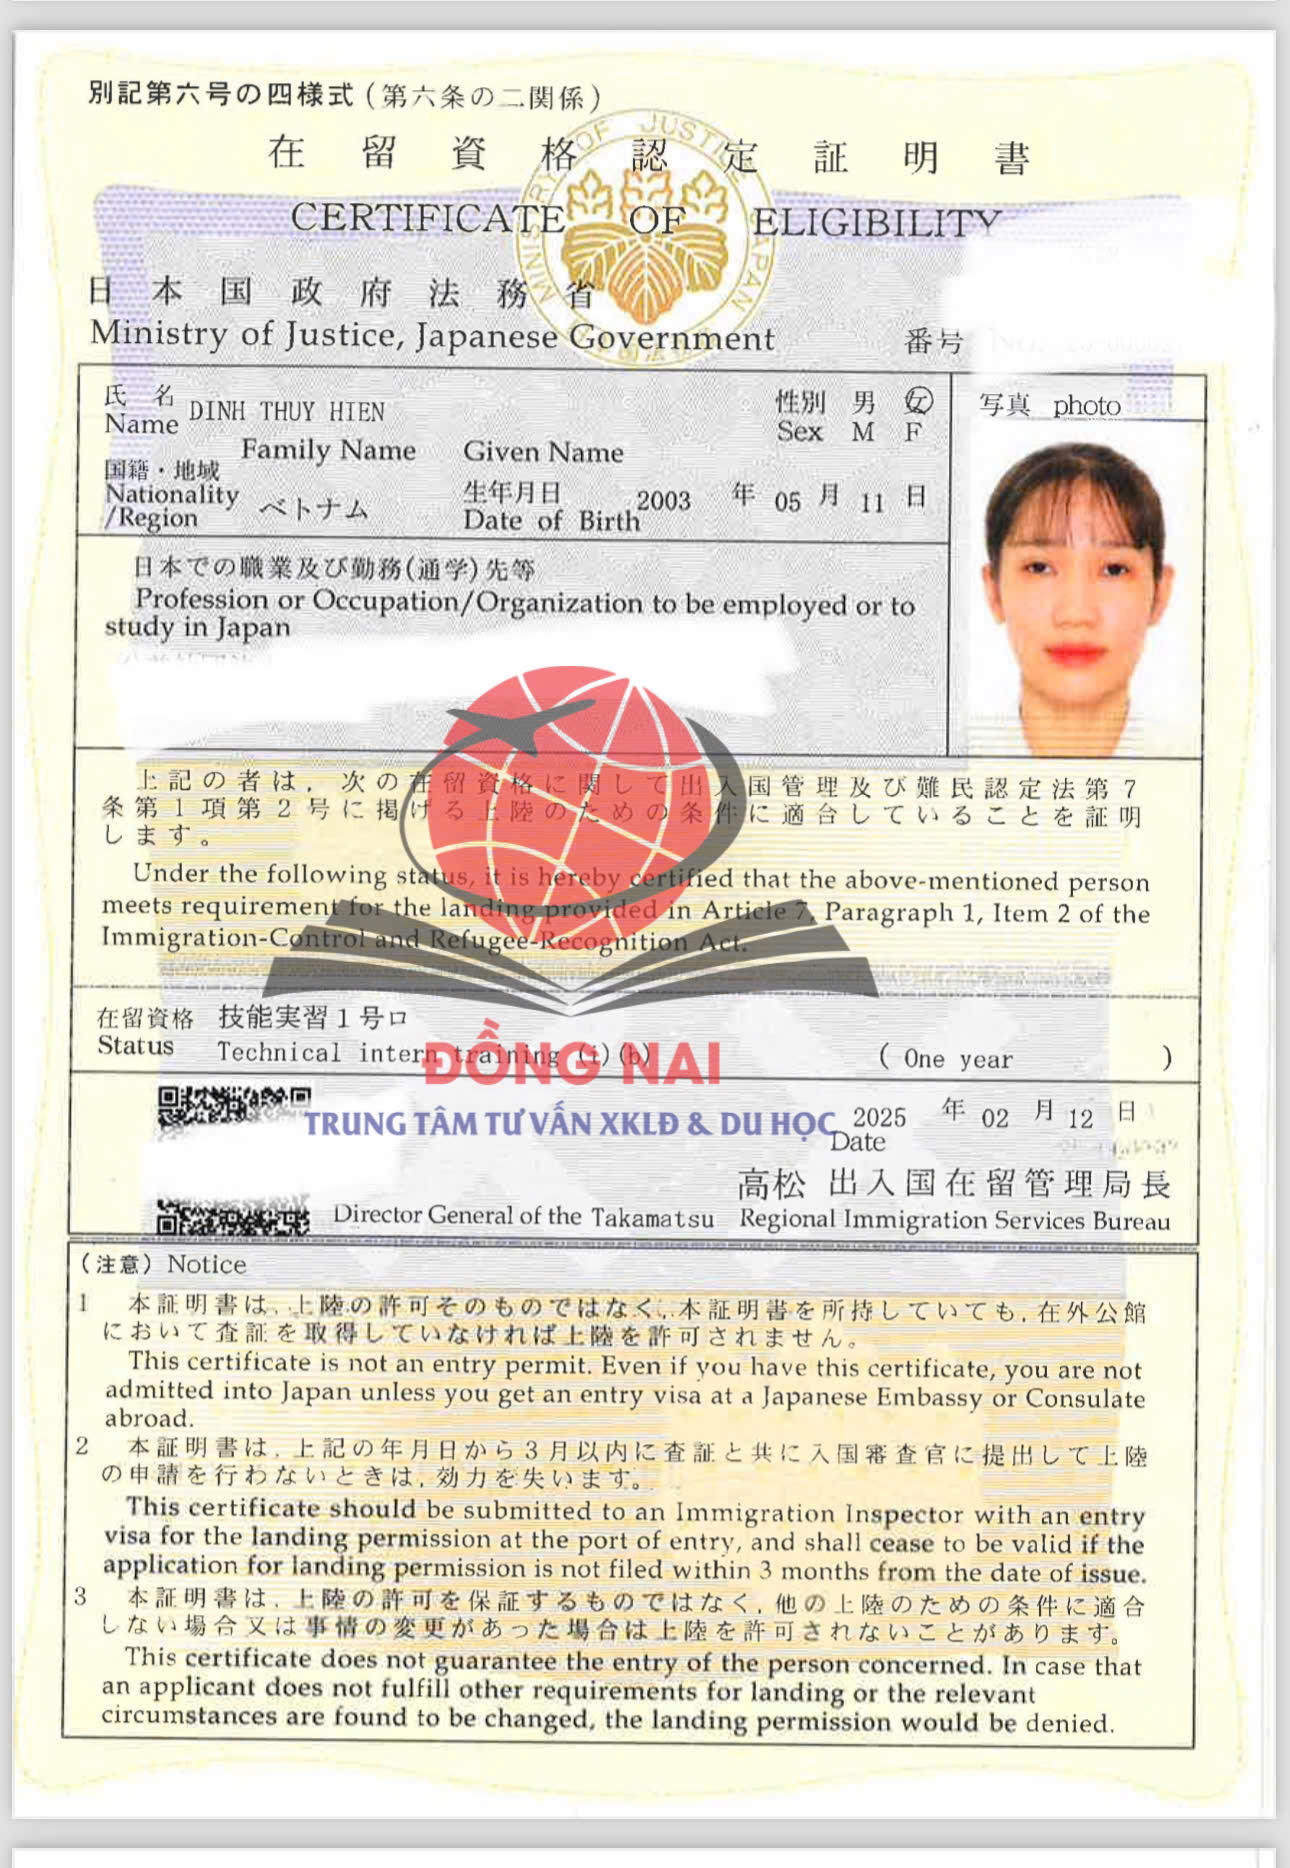 別記第六号の四様式(第六条の二関係)
在留資格認定証明書
CERTIFICATE OF ELIGIBILITY
MINISTRY OF JUSTICE JAPAN
日本国政府法務省
Ministry of Justice, Japanese Government
番号
氏名 DINH THUY HIEN
Name
Family Name Given Name
性別 男 女
Sex M F
写真 photo
国籍・地域
Nationality
/Region
ベトナム
生年月日
Date of Birth
2003 年 05 月 11 日
日本での職業及び勤務(通学)先等
Profession or Occupation/Organization to be employed or to
study in Japan
上記の者は, 次の在留資格に関して出入国管理及び難民認定法第7
条第1項第2号に掲げる上陸のための条件に適合していることを証明
します。
Under the following status, it is hereby certified that the above-mentioned person
meets requirement for the landing provided in Article 7, Paragraph 1, Item 2 of the
Immigration-Control and Refugee-Recognition Act.
在留資格 技能実習1号ロ
Status Technical intern training (i)(b) ( One year )
ĐỒNG NAI
TRUNG TÂM TƯ VẤN XKLĐ & DU HỌC
2025 年 02 月 12 日
Date
高松 出入国在留管理局長
Director General of the Takamatsu Regional Immigration Services Bureau
(注意) Notice
1 本証明書は, 上陸の許可そのものではなく, 本証明書を所持していても, 在外公館
において査証を取得していなければ上陸を許可されません。
This certificate is not an entry permit. Even if you have this certificate, you are not
admitted into Japan unless you get an entry visa at a Japanese Embassy or Consulate
abroad.
2 本証明書は, 上記の年月日から3月以内に査証と共に入国審査官に提出して上陸
の申請を行わないときは, 効力を失います。
This certificate should be submitted to an Immigration Inspector with an entry
visa for the landing permission at the port of entry, and shall cease to be valid if the
application for landing permission is not filed within 3 months from the date of issue.
3 本証明書は, 上陸の許可を保証するものではなく, 他の上陸のための条件に適合
しない場合又は事情の変更があった場合は上陸を許可されないことがあります。
This certificate does not guarantee the entry of the person concerned. In case that
an applicant does not fulfill other requirements for landing or the relevant
circumstances are found to be changed, the landing permission would be denied.